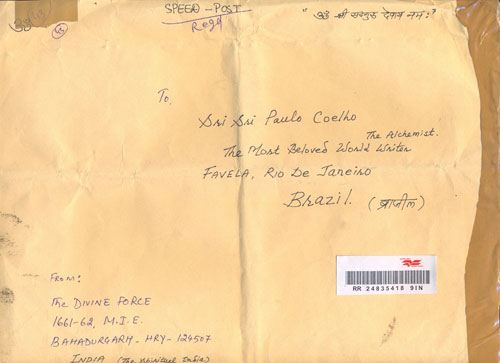 SPEED-POST
Regd
"ॐ श्री सतगुरु देवाय नमः"
To,
Sri Sri Paulo Coelho
The Alchemist.
The Most Beloved World Writer
FAVELA, RIO DE JANEIRO
Brazil. (ब्राजील)
RR 24835418 9IN
From:
The DIVINE FORCE
1661-62, M.I.E.
BAHADURGARH - HRY - 124507
INDIA (The Spiritual India)